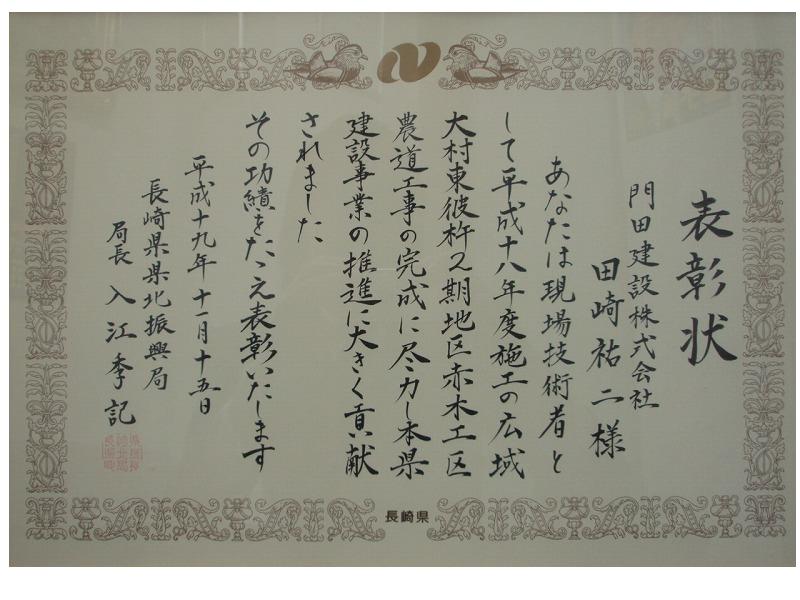 表彰状
門田建設株式会社
田崎祐二様
あなたは現場技術者と
して平成十八年度施工の広域
大村東彼杵2期地区赤木工区
農道工事の完成に尽力し本県
建設事業の推進に大きく貢献
されました
その功績をたゝえ表彰いたします
平成十九年十一月十五日
長崎県県北振興局
局長 入江季記
長崎県